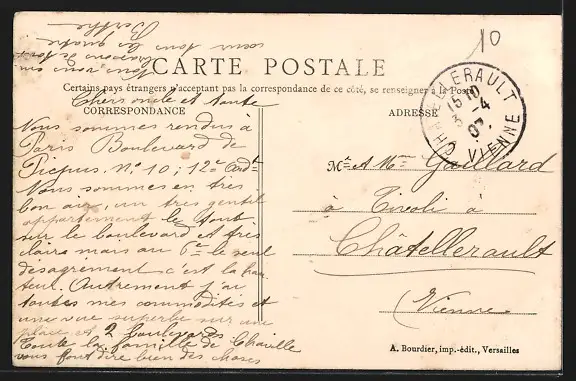 10
CARTE POSTALE
Certains pays étrangers n'acceptant pas la correspondance de ce côté, se renseigner à la Poste
CORRESPONDANCE
ADRESSE
Chers oncle et tante
Nous sommes rendus à
Paris Boulevard de
Picpus. No 10; 12e Ardt
Nous sommes en très
bon air, un très gentil
appartement le tout
sur le boulevard et très
claire mais au 7e le seul
désagrément c'est la hau
teur. Autrement j'ai
toutes mes commodités et
une vue superbe sur une
place et 2 boulevards
Toute la famille de Chaville
vous font dire bien des choses
Nous vous embrassons de tout
cœur tous les quatre
Berthe
CHATELLERAULT
15 10
3 -4
07
VIENNE
Mr & Mme Gaillard
à Tivoli à
Châtellerault
(Vienne)
A. Bourdier, imp.-édit., Versailles